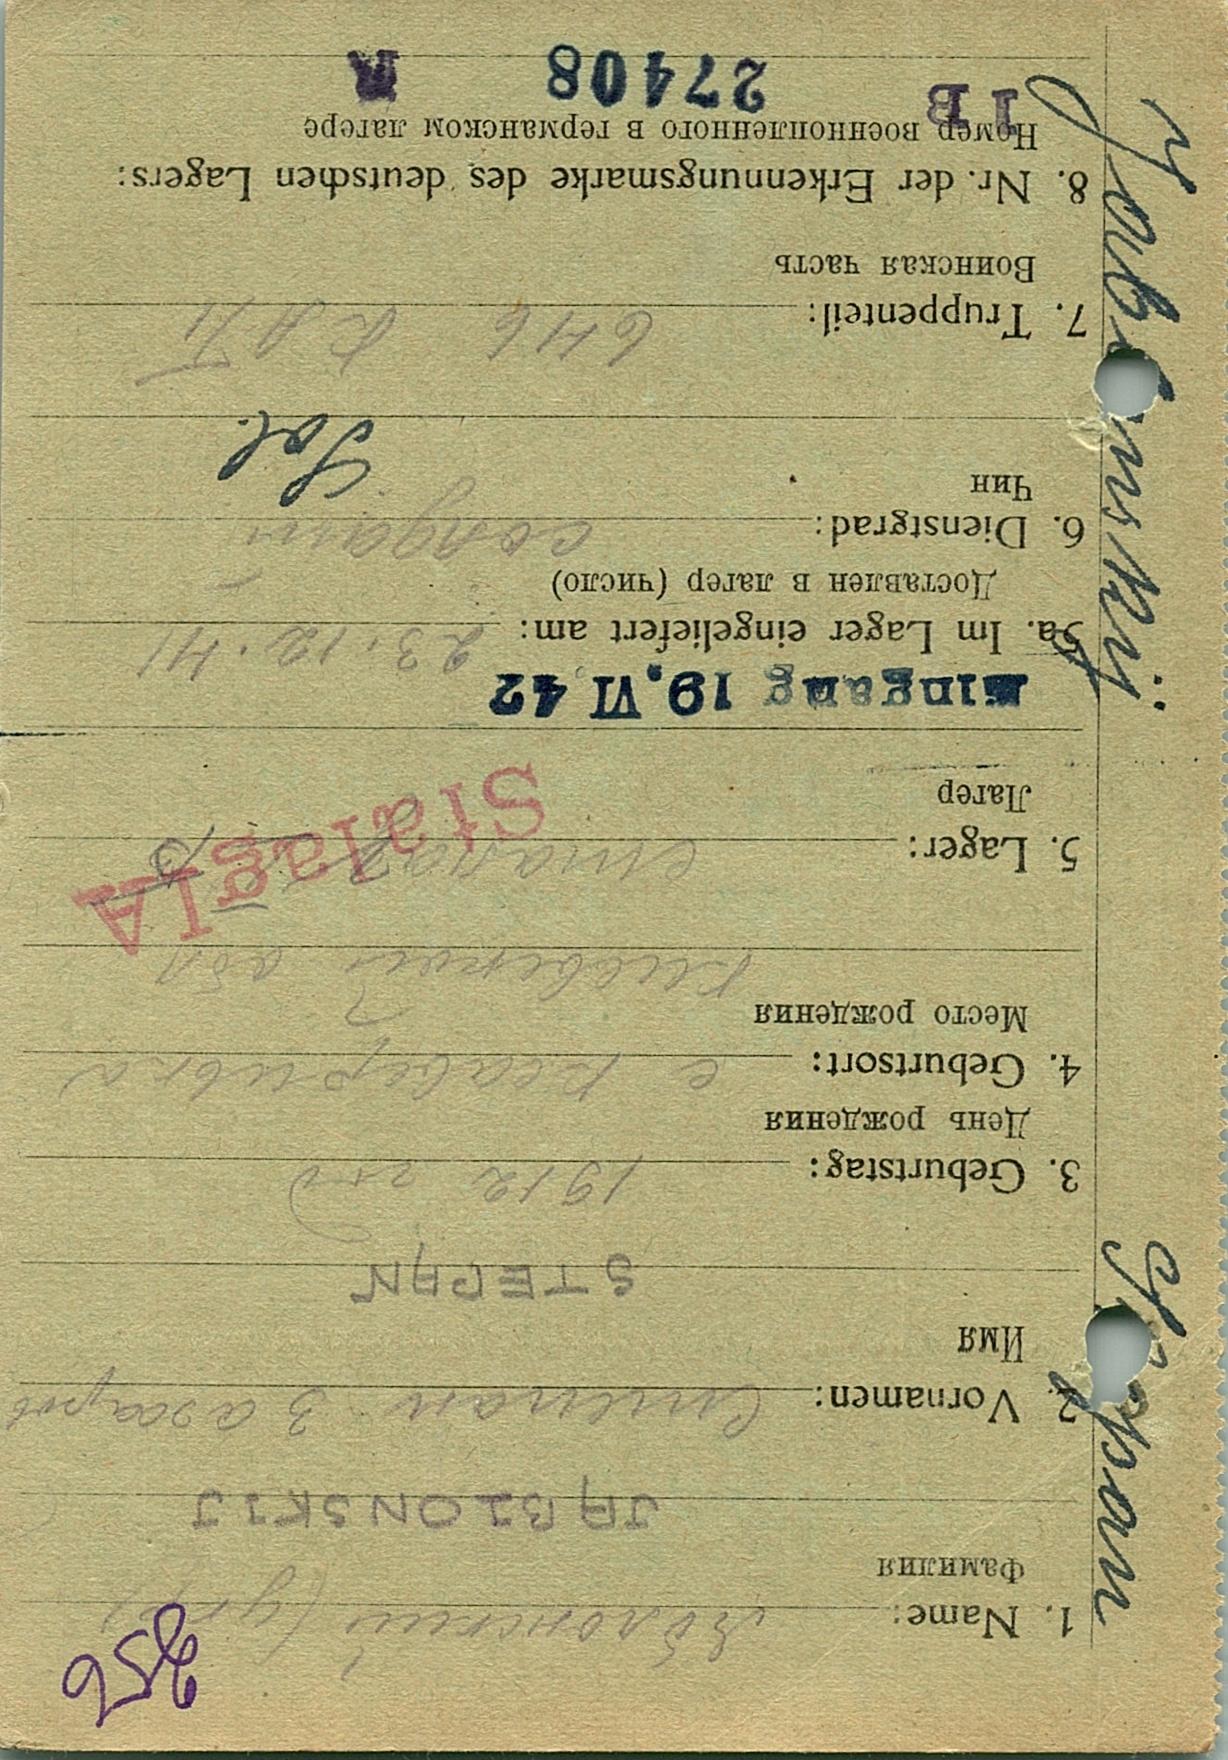 258
1. Name: Яблонский (укр)
Фамилия
JABLONSKIJ
2. Vornamen: Степан Захаров
Имя
STEPAN
3. Geburtstag: 1912 год
День рождения
4. Geburtsort: с
Место рождения
Киевской обл
5. Lager: сталаг
Лагер
Stalag IA
Eingang 19. VI 42
5a. Im Lager eingeliefert am: 23.12.41
Доставлен в лагер (число)
6. Dienstgrad: солдат
Чин
Sol.
7. Truppenteil: 646 КАП
Воинская часть
8. Nr. der Erkennungsmarke des deutschen Lagers:
Номер военнопленного в германском лагере
1B 27408